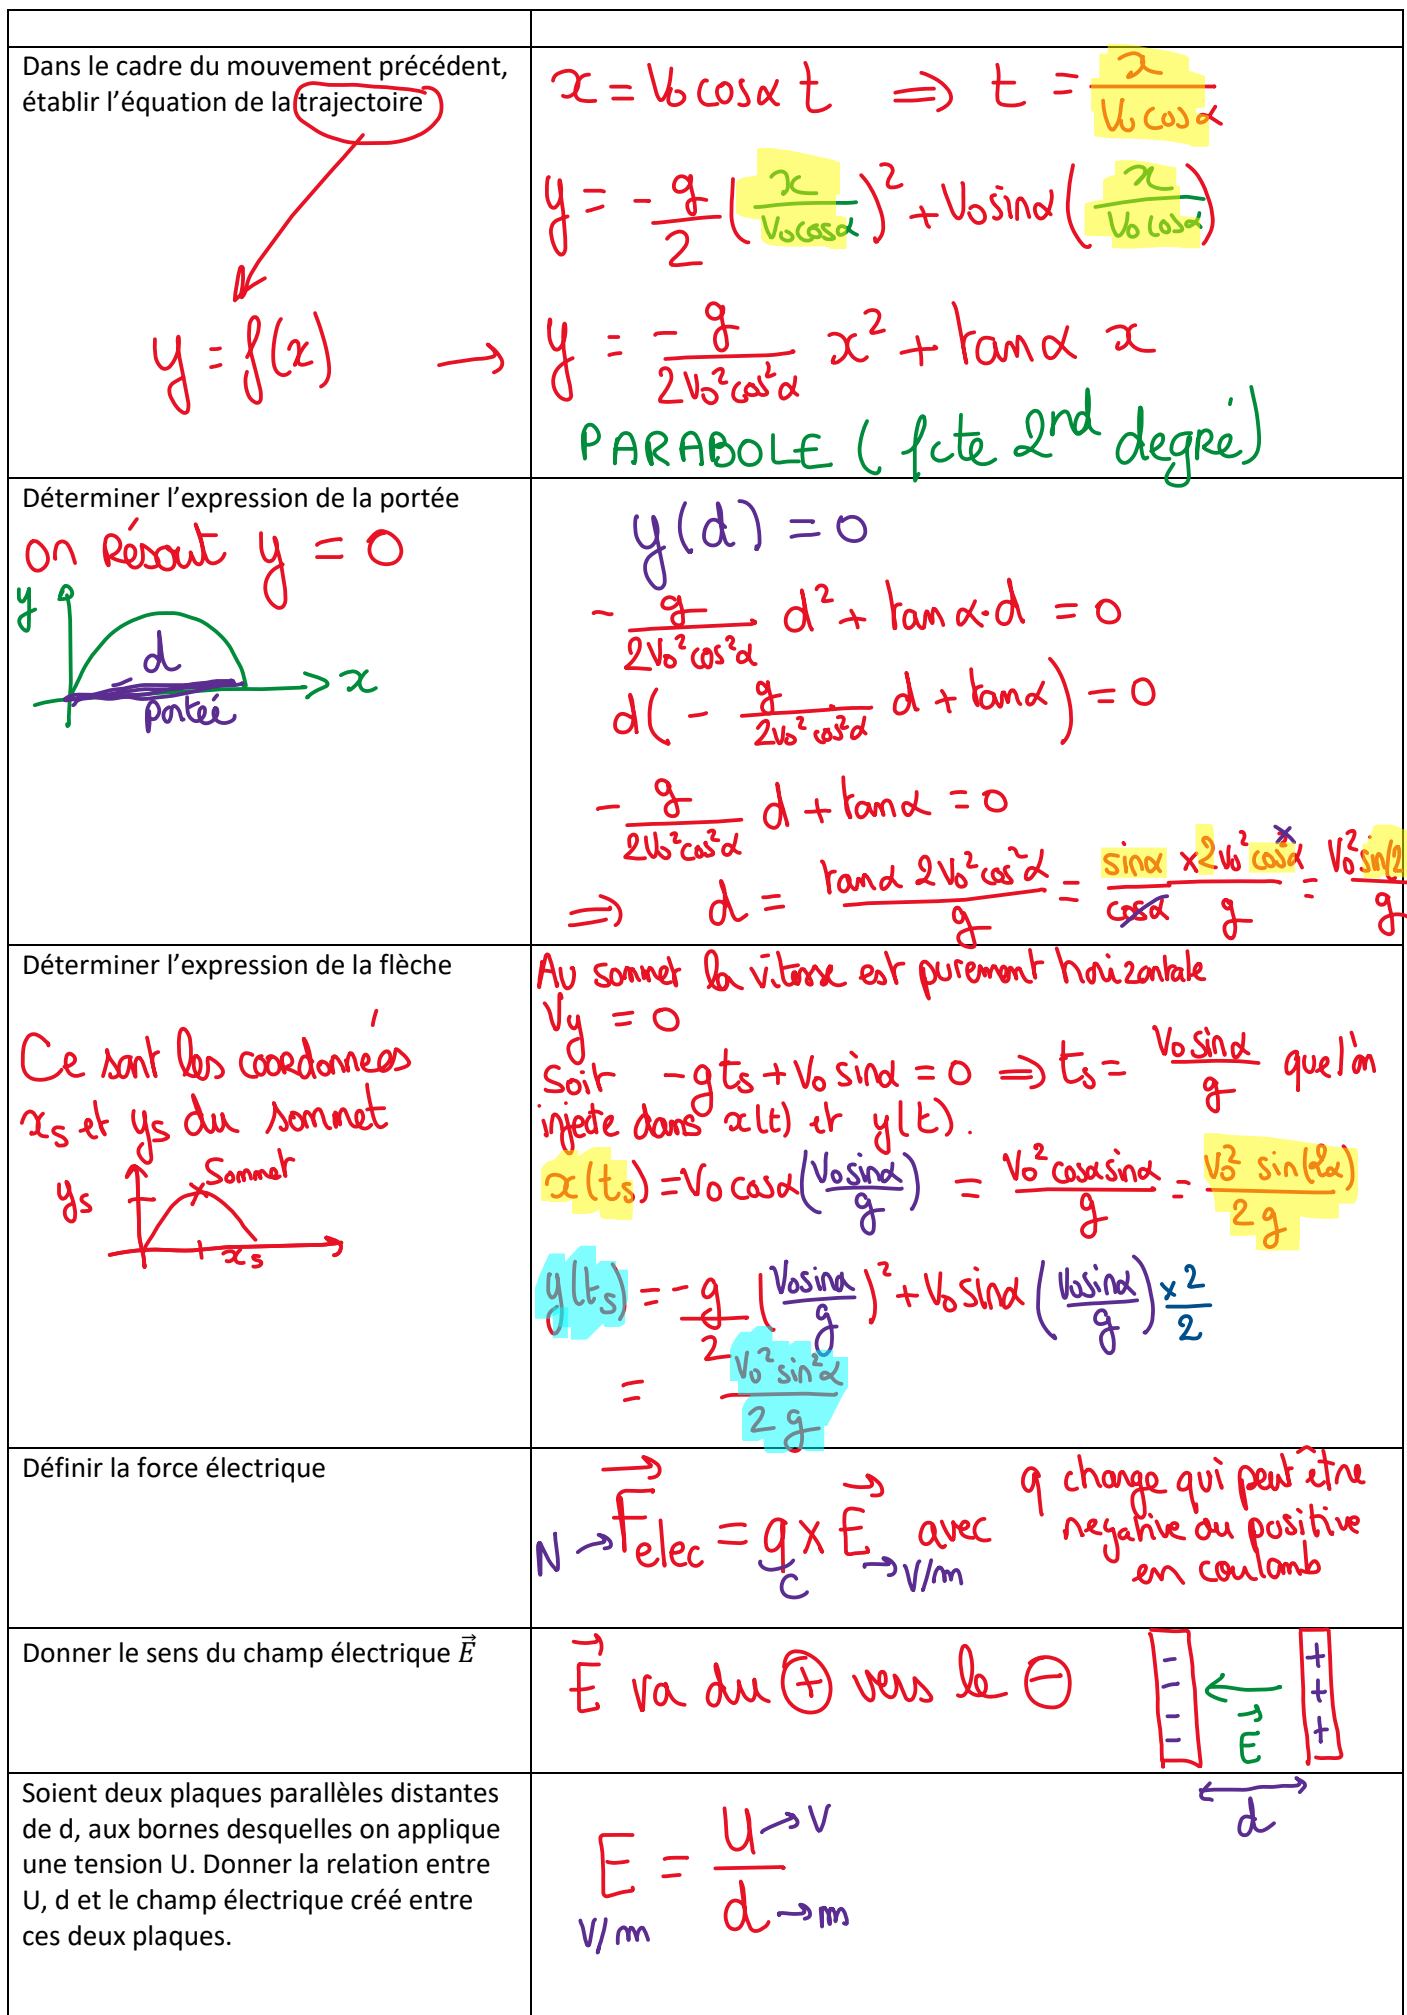 Dans le cadre du mouvement précédent,
établir l'équation de la trajectoire
y = f(x) →
x = V₀ cosα t ⇒ t = x / (V₀ cosα)
y = -g/2 (x / (V₀ cosα))² + V₀ sinα (x / (V₀ cosα))
y = -g / (2V₀² cos²α) x² + tanα x
PARABOLE (fcte 2nd degré)
Déterminer l'expression de la portée
on Résout y = 0
y
d
x
portée
y(d) = 0
- g / (2V₀² cos²α) d² + tanα·d = 0
d(- g / (2V₀² cos²α) d + tanα) = 0
- g / (2V₀² cos²α) d + tanα = 0
⇒ d = tanα 2V₀² cos²α / g = sinα / cosα × 2V₀² cos²α / g = V₀² sin(2 / g
Déterminer l'expression de la flèche
Ce sont les coordonnées
xs et ys du sommet
Sommet
ys
xs
Au sommet la vitesse est purement horizontale
Vy = 0
Soit -g ts + V₀ sinα = 0 ⇒ ts = V₀ sinα / g que l'on
injecte dans x(t) et y(t).
x(ts) = V₀ cosα (V₀ sinα / g) = V₀² cosα sinα / g = V₀² sin(2α) / 2g
y(ts) = -g/2 (V₀ sinα / g)² + V₀ sinα (V₀ sinα / g) ×2/2
= V₀² sin²α / 2g
Définir la force électrique
N → F⃗elec = q × E⃗ avec
C
→ V/m
q charge qui peut être
négative ou positive
en coulomb
Donner le sens du champ électrique E⃗
E⃗ va du ⊕ vers le ⊖
- - - -
E⃗
+ + +
d
Soient deux plaques parallèles distantes
de d, aux bornes desquelles on applique
une tension U. Donner la relation entre
U, d et le champ électrique créé entre
ces deux plaques.
E = U / d
→ V
→ m
V/m